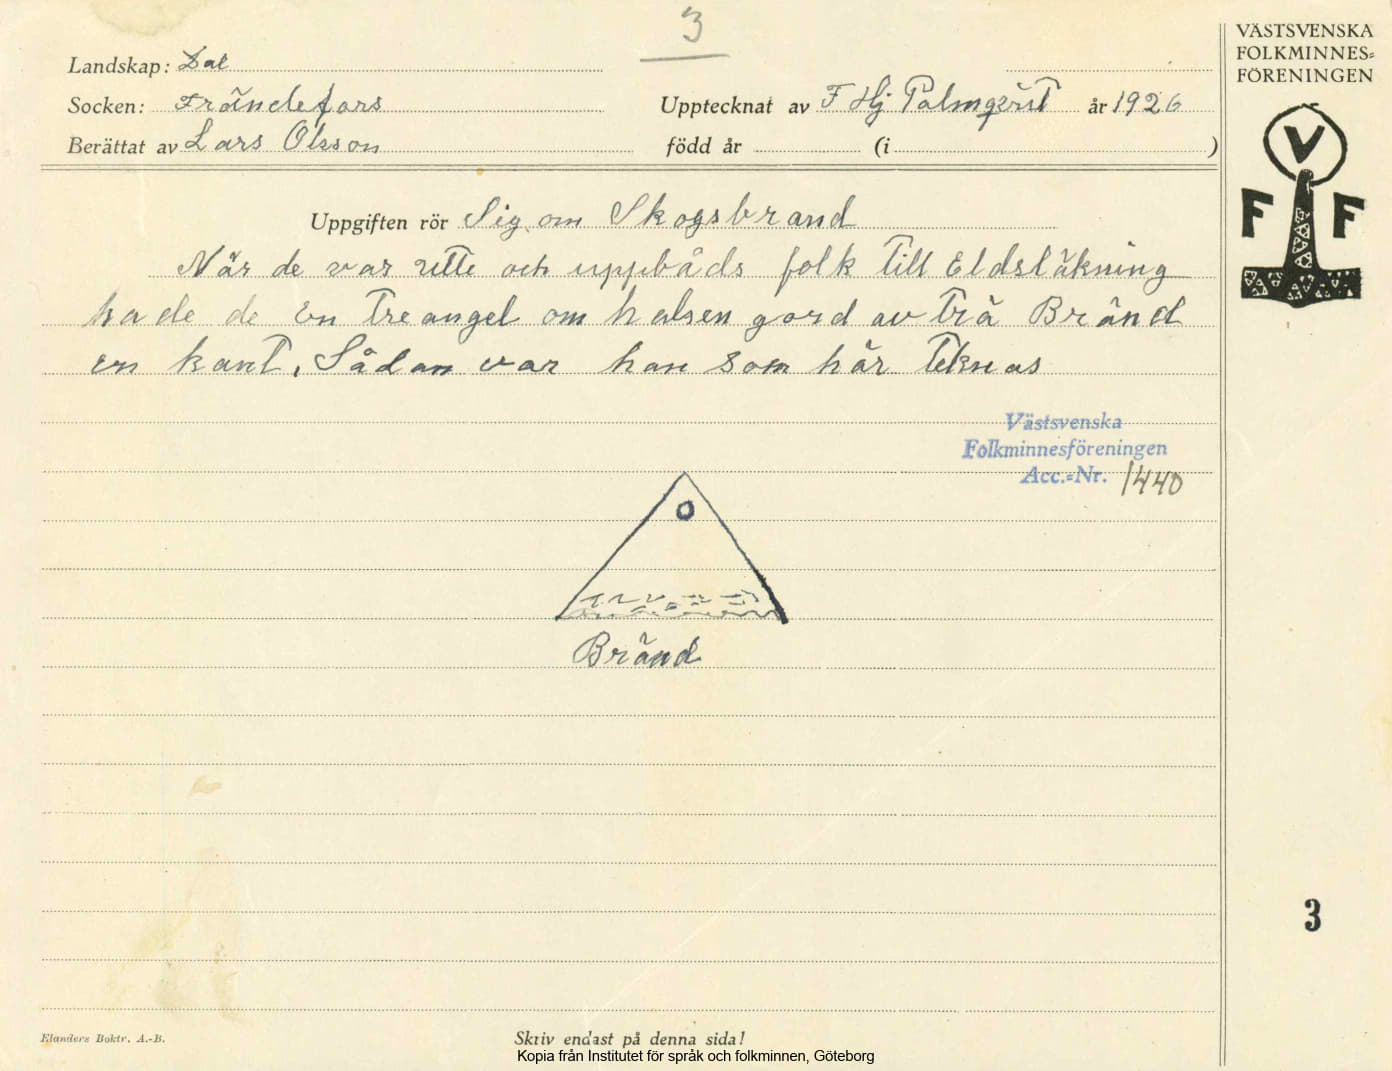 3
VÄSTSVENSKA
FOLKMINNES=
FÖRENINGEN
Landskap: Dal
Socken: Frändefors
Upptecknat av F Hj Palmqvist år 1926
Berättat av Lars Olsson
född år (i )
V
F F
Uppgiften rör Sig om Skogsbrand
När de var utte och uppbåds folk till Eldsläkning
hade de En treangel om halsen gord av trä Bränd
en kant. Sådan var han som här teknas
Västsvenska
Folkminnesföreningen
Acc.=Nr. 1440
Bränd
3
Elanders Boktr. A.-B.
Skriv endast på denna sida!
Kopia från Institutet för språk och folkminnen, Göteborg